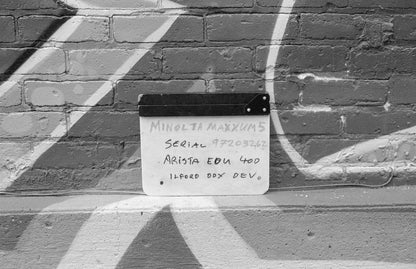 MINOLTA MAXXUM 5
SERIAL 97203262
ARISTA EDU 400
ILFORD DDX DEV.